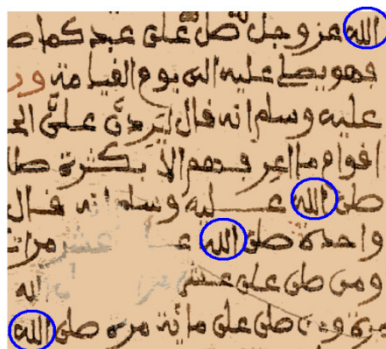 الله عز وجل صل على عبد كما ص
فهو يصلي عليه الى يوم القيامة ور
عليه وسلم انه قال ليردن على الح
اقوام ما اعرفهم الا بكثرة صلا
صلى الله عليه وسلم انه قال
واحدة صلى الله عشر مرات
ومن صلى على عشر الله
مرة ومن صلى على مائة مرة صلى الله